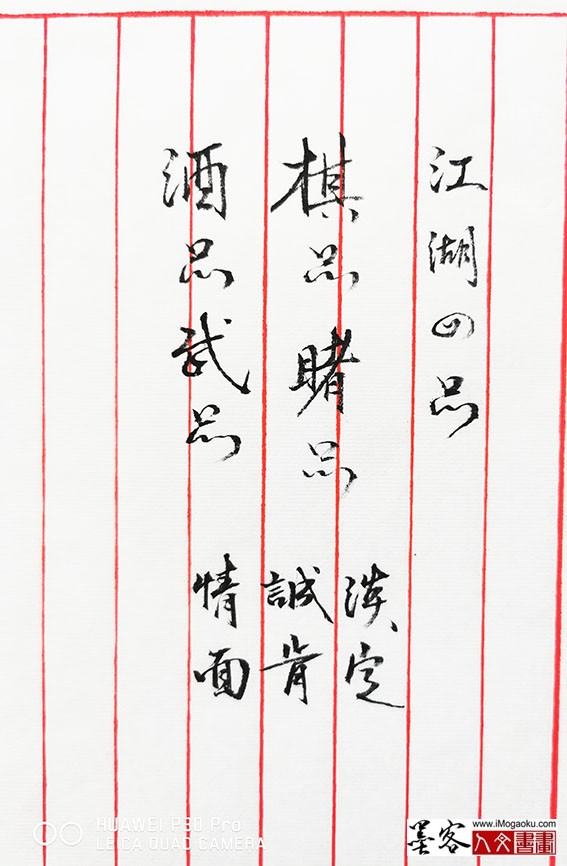 江湖四品
棋品睹品
酒品武品
淡定
誠肯
情面
HUAWEI P30 Pro
LEICA QUAD CAMERA
墨客
www.iMogaoku.com
人文書畫